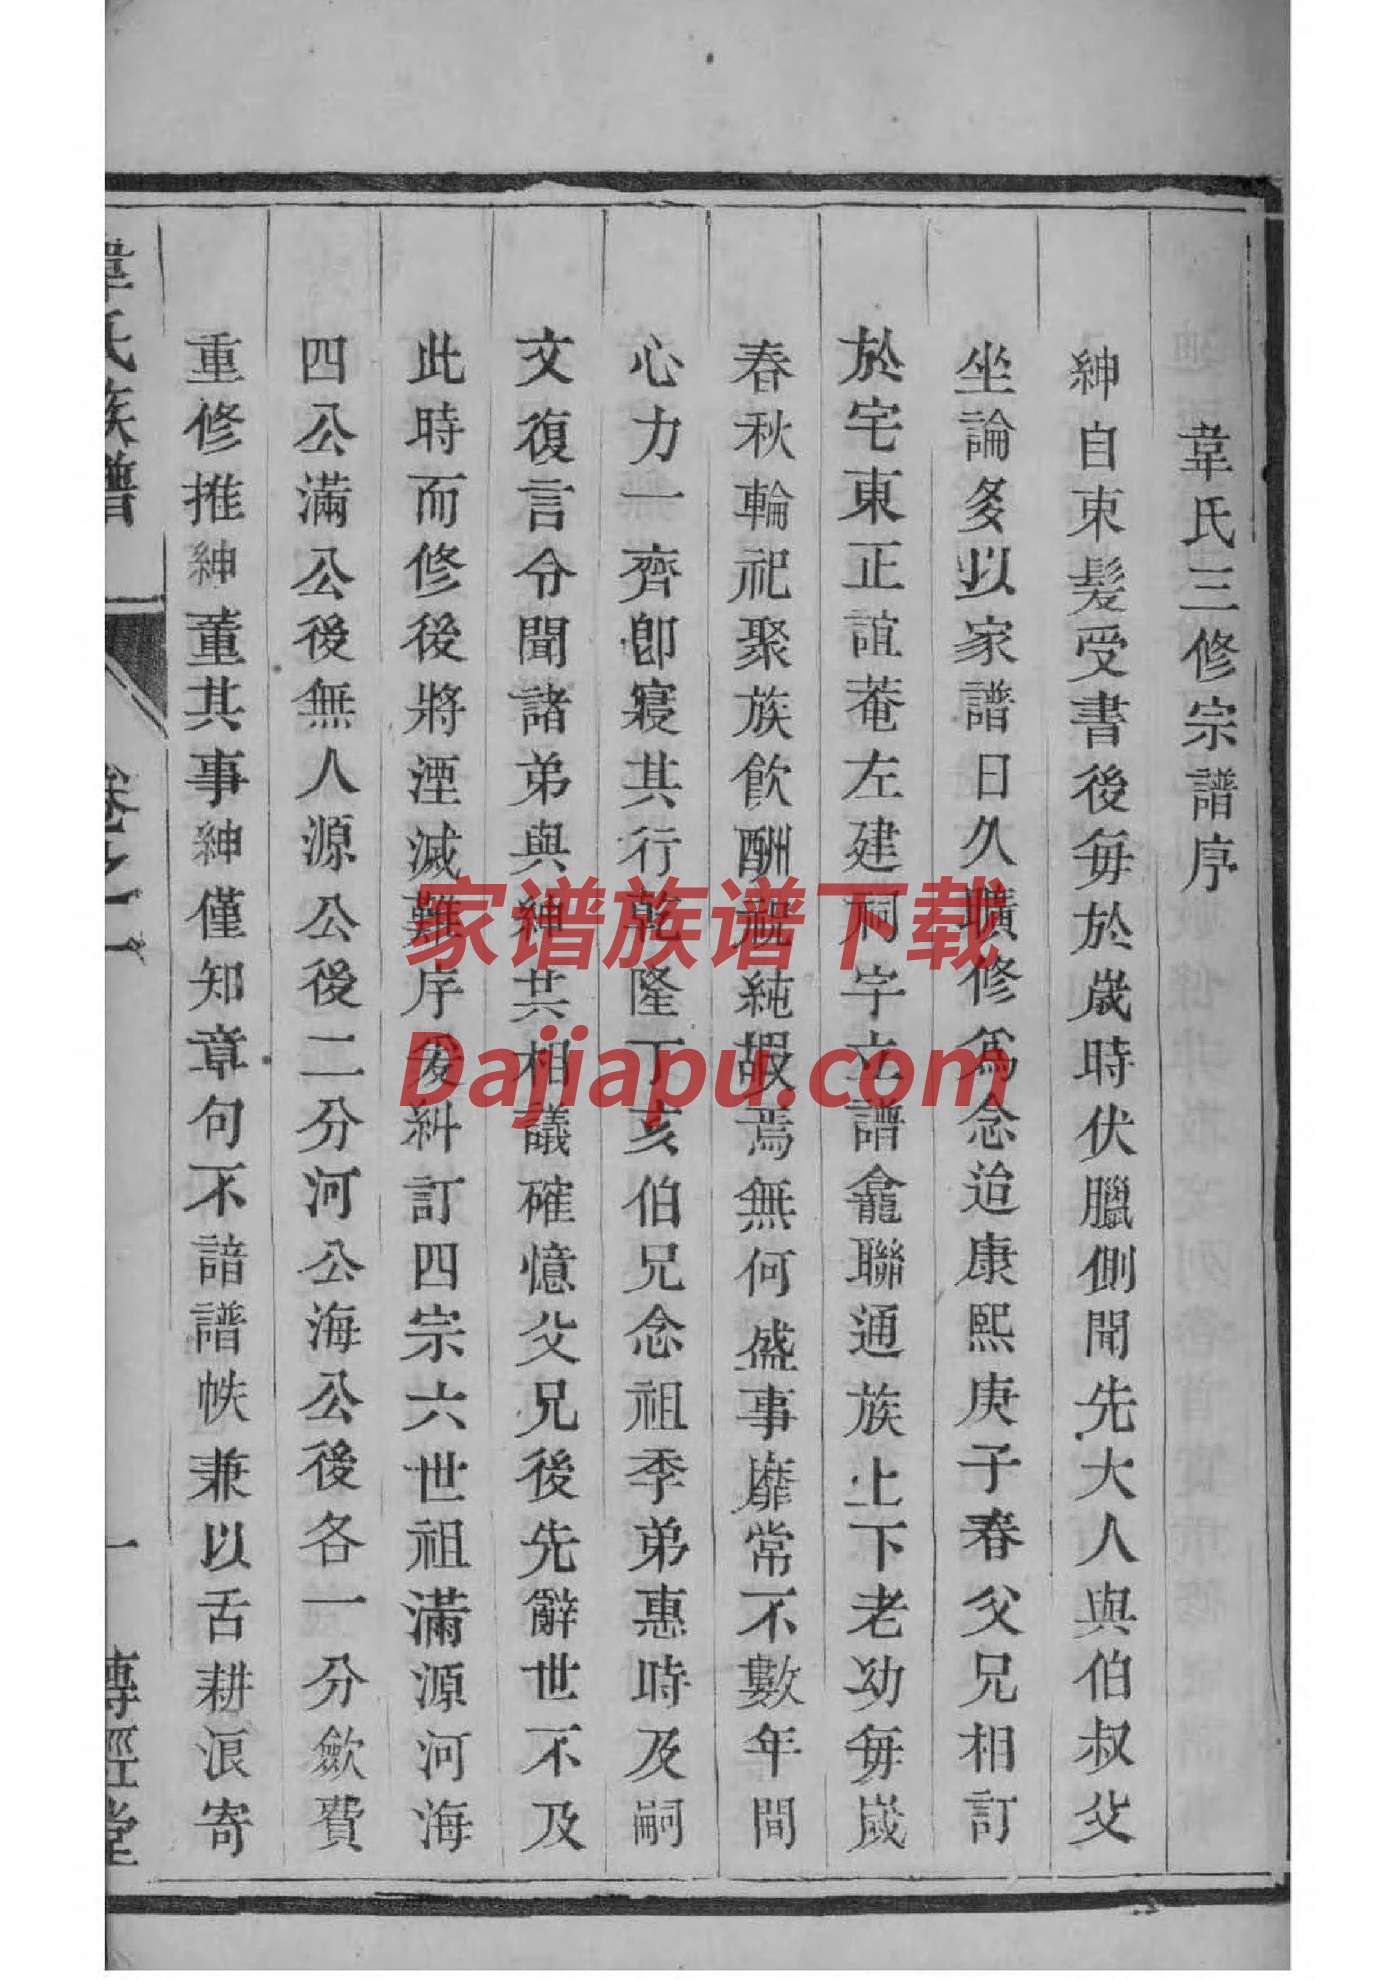 韋氏三修宗譜序
紳自束髮受書後每於歲時伏臘側聞先大人與伯叔父
坐論多以家譜日久曠修為念迨康熙庚子春父兄相訂
於宅東正誼菴左建祠宇立譜龕聯通族上下老幼每歲
春秋輪祀聚族飲酬嘏純嘏焉無何盛事靡常不數年間
心力一齊卽寢其行乾隆丁亥伯兄念祖季弟惠時及嗣
文復言令聞諸弟與紳共相議確憶父兄後先辭世不及
此時而修後將湮滅難序爰糾訂四宗六世祖滿源河海
四公滿公後無人源公後二分河公海公後各一分歛費
重修推紳董其事紳僅知章句不諳譜帙兼以舌耕浪寄
韋氏族譜 卷之一 一 傳經堂
家谱族谱下载
Dajiapu.com